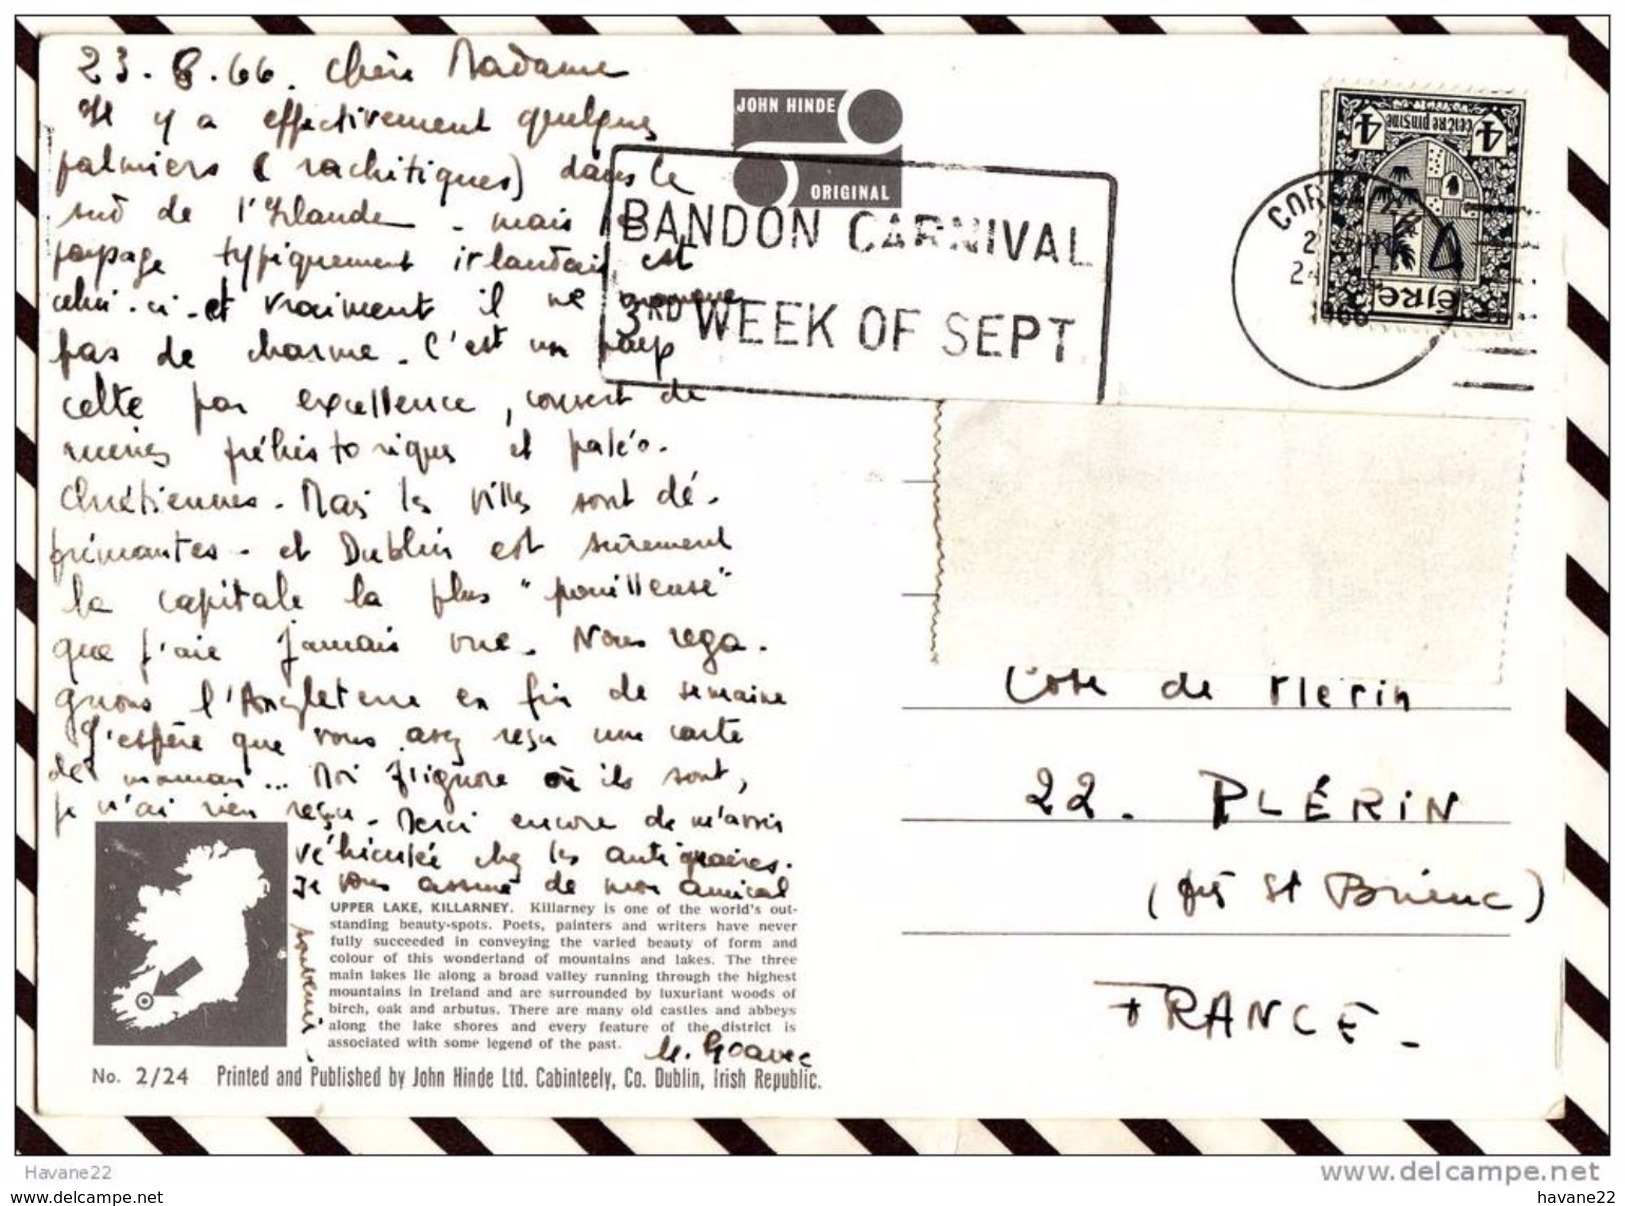 23.8.66. Chère Madame
Il y a effectivement quelques
palmiers (rachitiques) dans le
sud de l'Irlande - mais ce
paysage typiquement irlandais est
celui-ci - et vraiment il ne manque
pas de charme. C'est un pays
celte par excellence, couvert de
ruines préhistoriques et paléo-
chrétiennes. Mais les villes sont dé-
primantes - et Dublin est sûrement
la capitale la plus "pouilleuse"
que j'aie jamais vue. Nous rega-
gnons l'Angleterre en fin de semaine
J'espère que vous avez reçu une carte
de maman... Moi j'ignore où ils sont,
je n'ai rien reçu. Merci encore de m'avoir
véhiculée chez les antiquaires.
Je vous assure de mon amical
souvenir.
JOHN HINDE
ORIGINAL
BANDON CARNIVAL
3RD WEEK OF SEPT.
4 4
ceitre pinsine
éire
1966
Côte de Plérin
22. PLÉRIN
(près St Brieuc)
FRANCE -
UPPER LAKE, KILLARNEY. Killarney is one of the world's out-
standing beauty-spots. Poets, painters and writers have never
fully succeeded in conveying the varied beauty of form and
colour of this wonderland of mountains and lakes. The three
main lakes lie along a broad valley running through the highest
mountains in Ireland and are surrounded by luxuriant woods of
birch, oak and arbutus. There are many old castles and abbeys
along the lake shores and every feature of the district is
associated with some legend of the past.
No. 2/24 Printed and Published by John Hinde Ltd. Cabinteely, Co. Dublin, Irish Republic.
Havane22
www.delcampe.net
www.delcampe.net
havane22